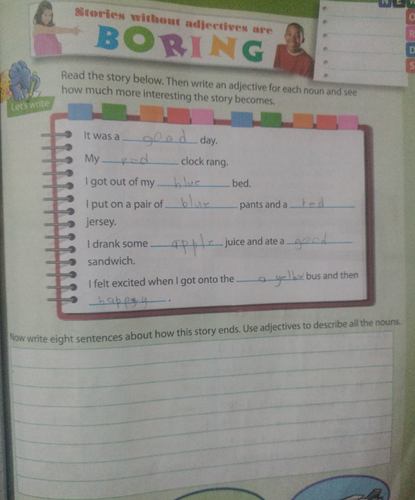 Stories without adjectives are
BORING
Let's write
Read the story below. Then write an adjective for each noun and see
how much more interesting the story becomes.
It was a good day.
My red clock rang.
I got out of my blue bed.
I put on a pair of blue pants and a red
jersey.
I drank some apple juice and ate a good
sandwich.
I felt excited when I got onto the a yellow bus and then
happy.
Now write eight sentences about how this story ends. Use adjectives to describe all the nouns.